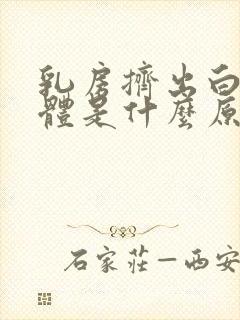 乳房擠出白
體是什麼原
石家莊—西安